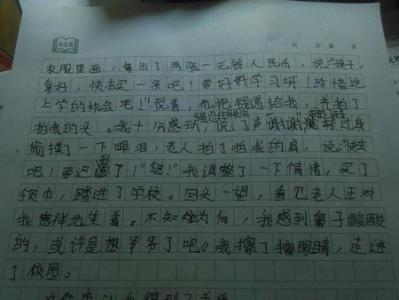 衣服里面，拿出了两张一元钱人民币，说：“孩子，
拿好，快去买一条吧！要好好学习呀！珍惜这
上学的机会吧！”说着，他把钱递给我，并拍了
拍我的头。我十分感动，强忍住眼泪
说了声谢谢，转过身
偷揩了一下眼泪，老人拍了拍我的肩，说：“快去
吧！要迟到了！”“嗯！”我调整了一下情绪，买了
领巾，踏进了学校。回头一望，看见老人正对
我慈祥地笑着。不知为何，我感到鼻子酸酸
的，或许是想爷爷了吧。我擦了擦眼睛，走进
了校园。